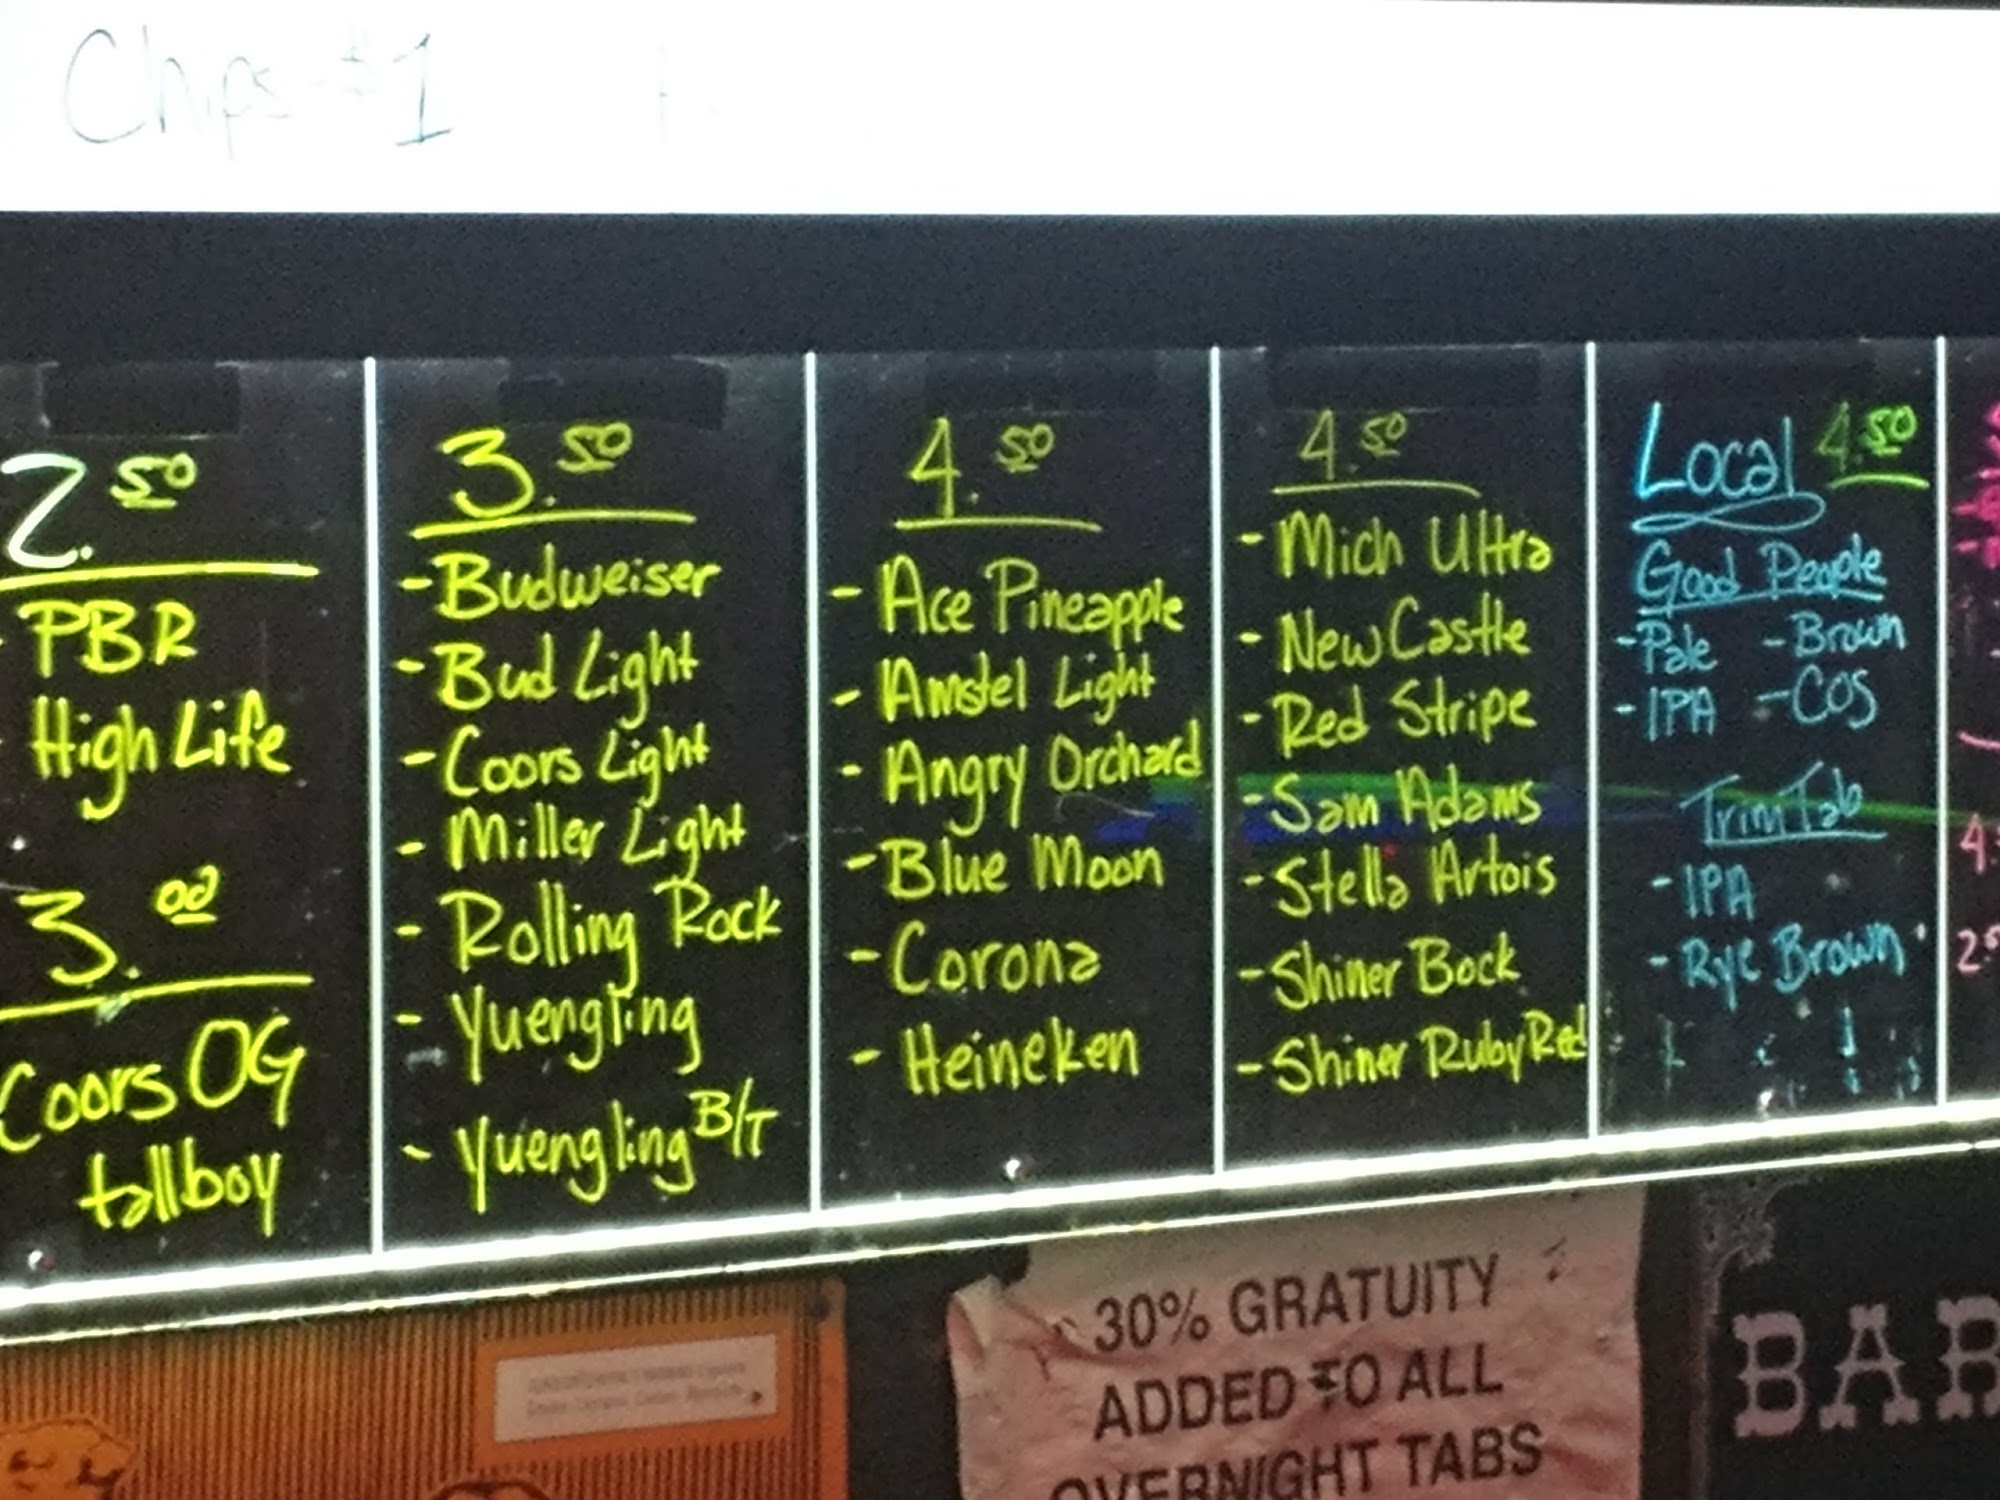 Chips $1
2.50
PBR
High Life
3.00
Coors OG
tallboy
3.50
-Budweiser
-Bud Light
-Coors Light
-Miller Light
-Rolling Rock
-Yuengling
-Yuengling B/T
4.50
-Ace Pineapple
-Amstel Light
-Angry Orchard
-Blue Moon
-Corona
-Heineken
4.50
-Mich Ultra
-New Castle
-Red Stripe
-Sam Adams
-Stella Artois
-Shiner Bock
-Shiner Ruby Red
Local 4.50
Good People
-Pale -Brown
-IPA -COS
TrimTab
-IPA
-Rye Brown
30% GRATUITY
ADDED TO ALL
OVERNIGHT TABS
BAR